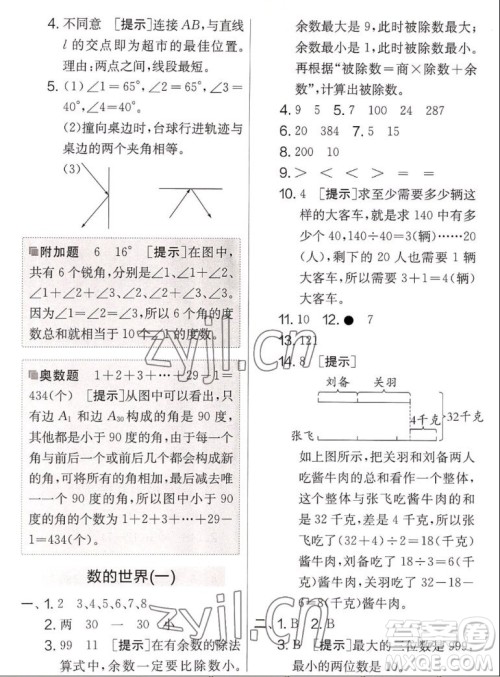 4. 不同意 [提示]连接 AB,与直线
l 的交点即为超市的最佳位置。
理由:两点之间,线段最短。
5. (1) ∠1=65° ∠2=65° ∠3
=40° ∠4=40°
(2)撞向桌边时,台球行进轨迹与
桌边的两个夹角相等。
(3)
附加题 6 16° [提示]在图中,
共有 6 个锐角,分别是∠1、∠1+∠2、
∠1+∠2+∠3、∠2、∠2+∠3、∠3。
因为∠1=∠2=∠3,所以 6 个角的度
数总和就相当于 10 个∠1 的度数。
奥数题 1+2+3+…+29-1=
434(个) [提示]从图中可以看出,只
有边 A1 和边 A30 构成的角是 90 度,
其他都是小于 90 度的角,由于每一个
角都与前一个或后面几个都成一个小
于 90 度的角(除了最后一个与第一个
是一个 90 度的角),所以图中小于 90
度的角的个数为 1+2+3+…+29-
1=434(个)。
数的世界(一)
一、1. 2 3、4、5、6、7、8
2. 两 30 一 30 小
3. 99 11 [提示]在有余数的除法
算式中,余数一定要比除数小。
余数最大是 9,此时被除数最大;
余数最小是 1,此时被除数最小。
再根据“被除数=商×除数+余
数”,计算出被除数。
4. 9 5. 7 100 24 287
6. 20 384 7. 5 15
8. 200 10
9. > < < > = <
10. 4 [提示]求至少需要多少辆这
样的大客车,就是求 140 中有多
少 40,140÷40=3(辆)……20
(人),剩下的 20 人也需要 1 辆大
客车,所以需要 3+1=4(辆)大
客车。
11. 10 12. ● 7
13. 121
14. 8 [提示]
刘备 关羽
4千克
32千克
张飞
如上图所示,把关羽和刘备两人
吃酱牛肉的总和看作一个整体,
这个整体与张飞吃酱牛肉的总和
是 32 千克,差是 4 千克,张飞吃
了(32+4)÷2=18(千克)酱牛
肉,刘备吃了 18-6-
6=8(千克)酱牛肉。
二、1. B 2. B
3. B [提示]最大的三位数是 999,
最小的两位数是 10。
zyjl.cn
zyjl.cn